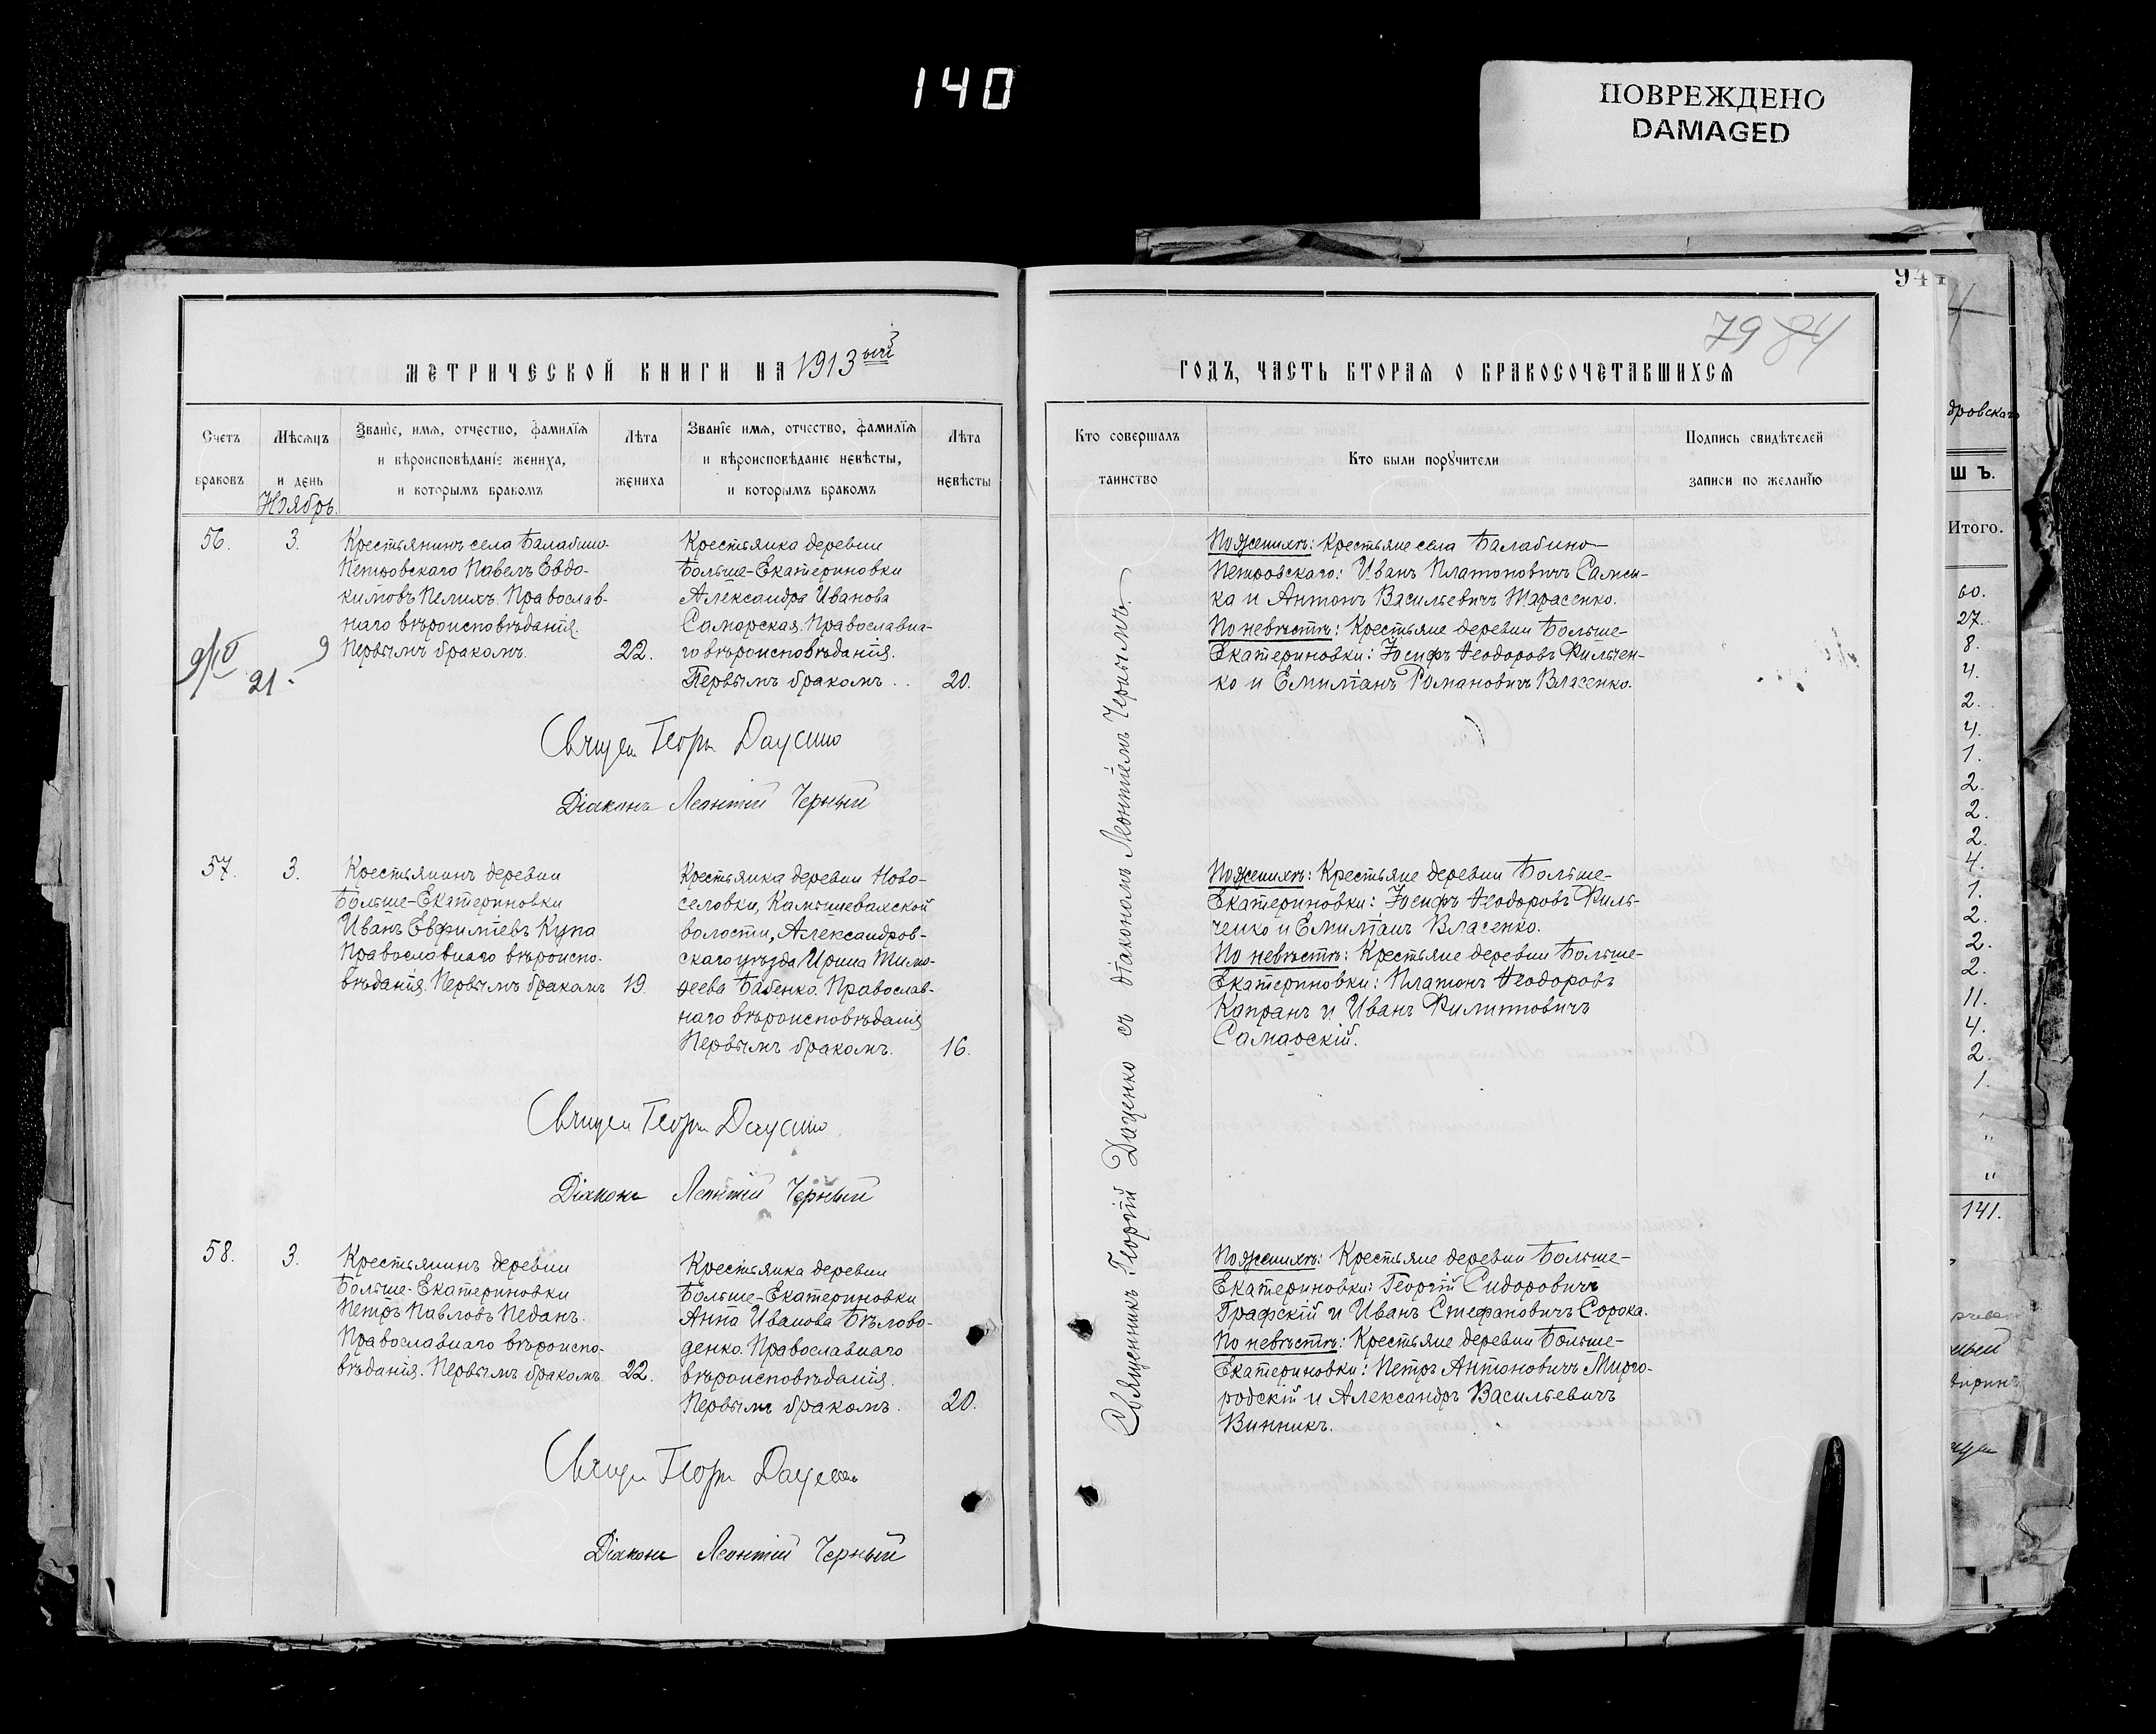 140
ПОВРЕЖДЕНО
DAMAGED
МЕТРИЧЕСКОЙ КНИГИ НА 1913
Счетъ браковъ
Мѣсяцъ и день
Ноябрь.
Званіе, имя, отчество, фамилія
и вѣроисповѣданіе жениха,
и которымъ бракомъ
Лѣта жениха
Званіе имя, отчество, фамилія
и вѣроисповѣданіе невѣсты,
и которымъ бракомъ
Лѣта невѣсты
56.
3.
Крестьянинъ села Балабино-
Петровскаго Павелъ Евдо-
кимовъ Пелихъ. Православ-
наго вѣроисповѣданія.
Первымъ бракомъ.
22.
Крестьянка деревни
Больше-Екатериновки
Александра Иванова
Самарская. Православна-
го вѣроисповѣданія.
Первымъ бракомъ.
20.
21.
9
Діаконъ Леонтій Черный
57.
3.
Крестьянинъ деревни
Больше-Екатериновки
Иванъ Евфиміевъ Купа
Православнаго вѣроиспо-
вѣданія. Первымъ бракомъ
19.
Крестьянка деревни Ново-
селовки, Камышевахской
волости, Александров-
скаго уѣзда Ирина Тимо-
ѳеева Бабенко. Православ-
наго вѣроисповѣданія
Первымъ бракомъ.
16.
Діаконъ Леонтій Черный
58.
3.
Крестьянинъ деревни
Больше-Екатериновки
Петръ Павловъ Педанъ.
Православнаго вѣроиспо-
вѣданія. Первымъ бракомъ
22.
Крестьянка деревни
Больше-Екатериновки
Анна Иванова Бѣлово-
денко. Православнаго
вѣроисповѣданія.
Первымъ бракомъ.
20.
Діаконъ Леонтій Черный
79 84
ГОДЪ, ЧАСТЬ ВТОРАЯ О БРАКОСОЧЕТАВШИХСЯ
Кто совершалъ
таинство
Кто были поручители
Подпись свидѣтелей
записи по желанію
Священникъ Георгій Даценко съ діакономъ Леонтіемъ Чернымъ.
По женихѣ: Крестьяне села Балабино-
Петровскаго: Иванъ Платоновичъ
и Антонъ Васильевичъ Тарасенко.
По невѣстѣ: Крестьяне деревни Больше-
Екатериновки: Іосифъ Ѳеодоровъ Фильчен-
ко и Емиліанъ Романовичъ Власенко.
По женихѣ: Крестьяне деревни Больше-
Екатериновки: Іосифъ Ѳеодоровъ Филь-
ченко и Емиліанъ Власенко.
По невѣстѣ: Крестьяне деревни Больше-
Екатериновки: Платонъ Ѳеодоровъ
Капранъ и Иванъ Филипповичъ
Самарскій.
По женихѣ: Крестьяне деревни Больше-
Екатериновки: Георгій Сидоровичъ
Графскій и Иванъ Стефановичъ Сорока.
По невѣстѣ: Крестьяне деревни Больше-
Екатериновки: Петръ Антоновичъ Мирго-
родскій и Александръ Васильевичъ
Винникъ.
Итого.
60.
27.
8.
4.
2.
4.
1.
2.
2.
2.
4.
1.
2.
2.
2.
11.
4.
2.
1.
"
"
141.